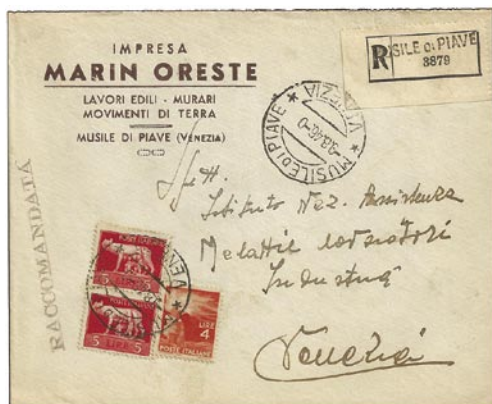 IMPRESA
MARIN ORESTE
LAVORI EDILI - MURARI
MOVIMENTI DI TERRA
MUSILE DI PIAVE (VENEZIA)
R
SILE DI PIAVE
3879
★ MUSILE DI PIAVE ★ VENEZIA
RACCOMANDATA
Istituto Naz. Assistenza
Malattie lavoratori
Industria
Venezia
5 LIRE 5
5 LIRE 5
LIRE
4
POSTE ITALIANE